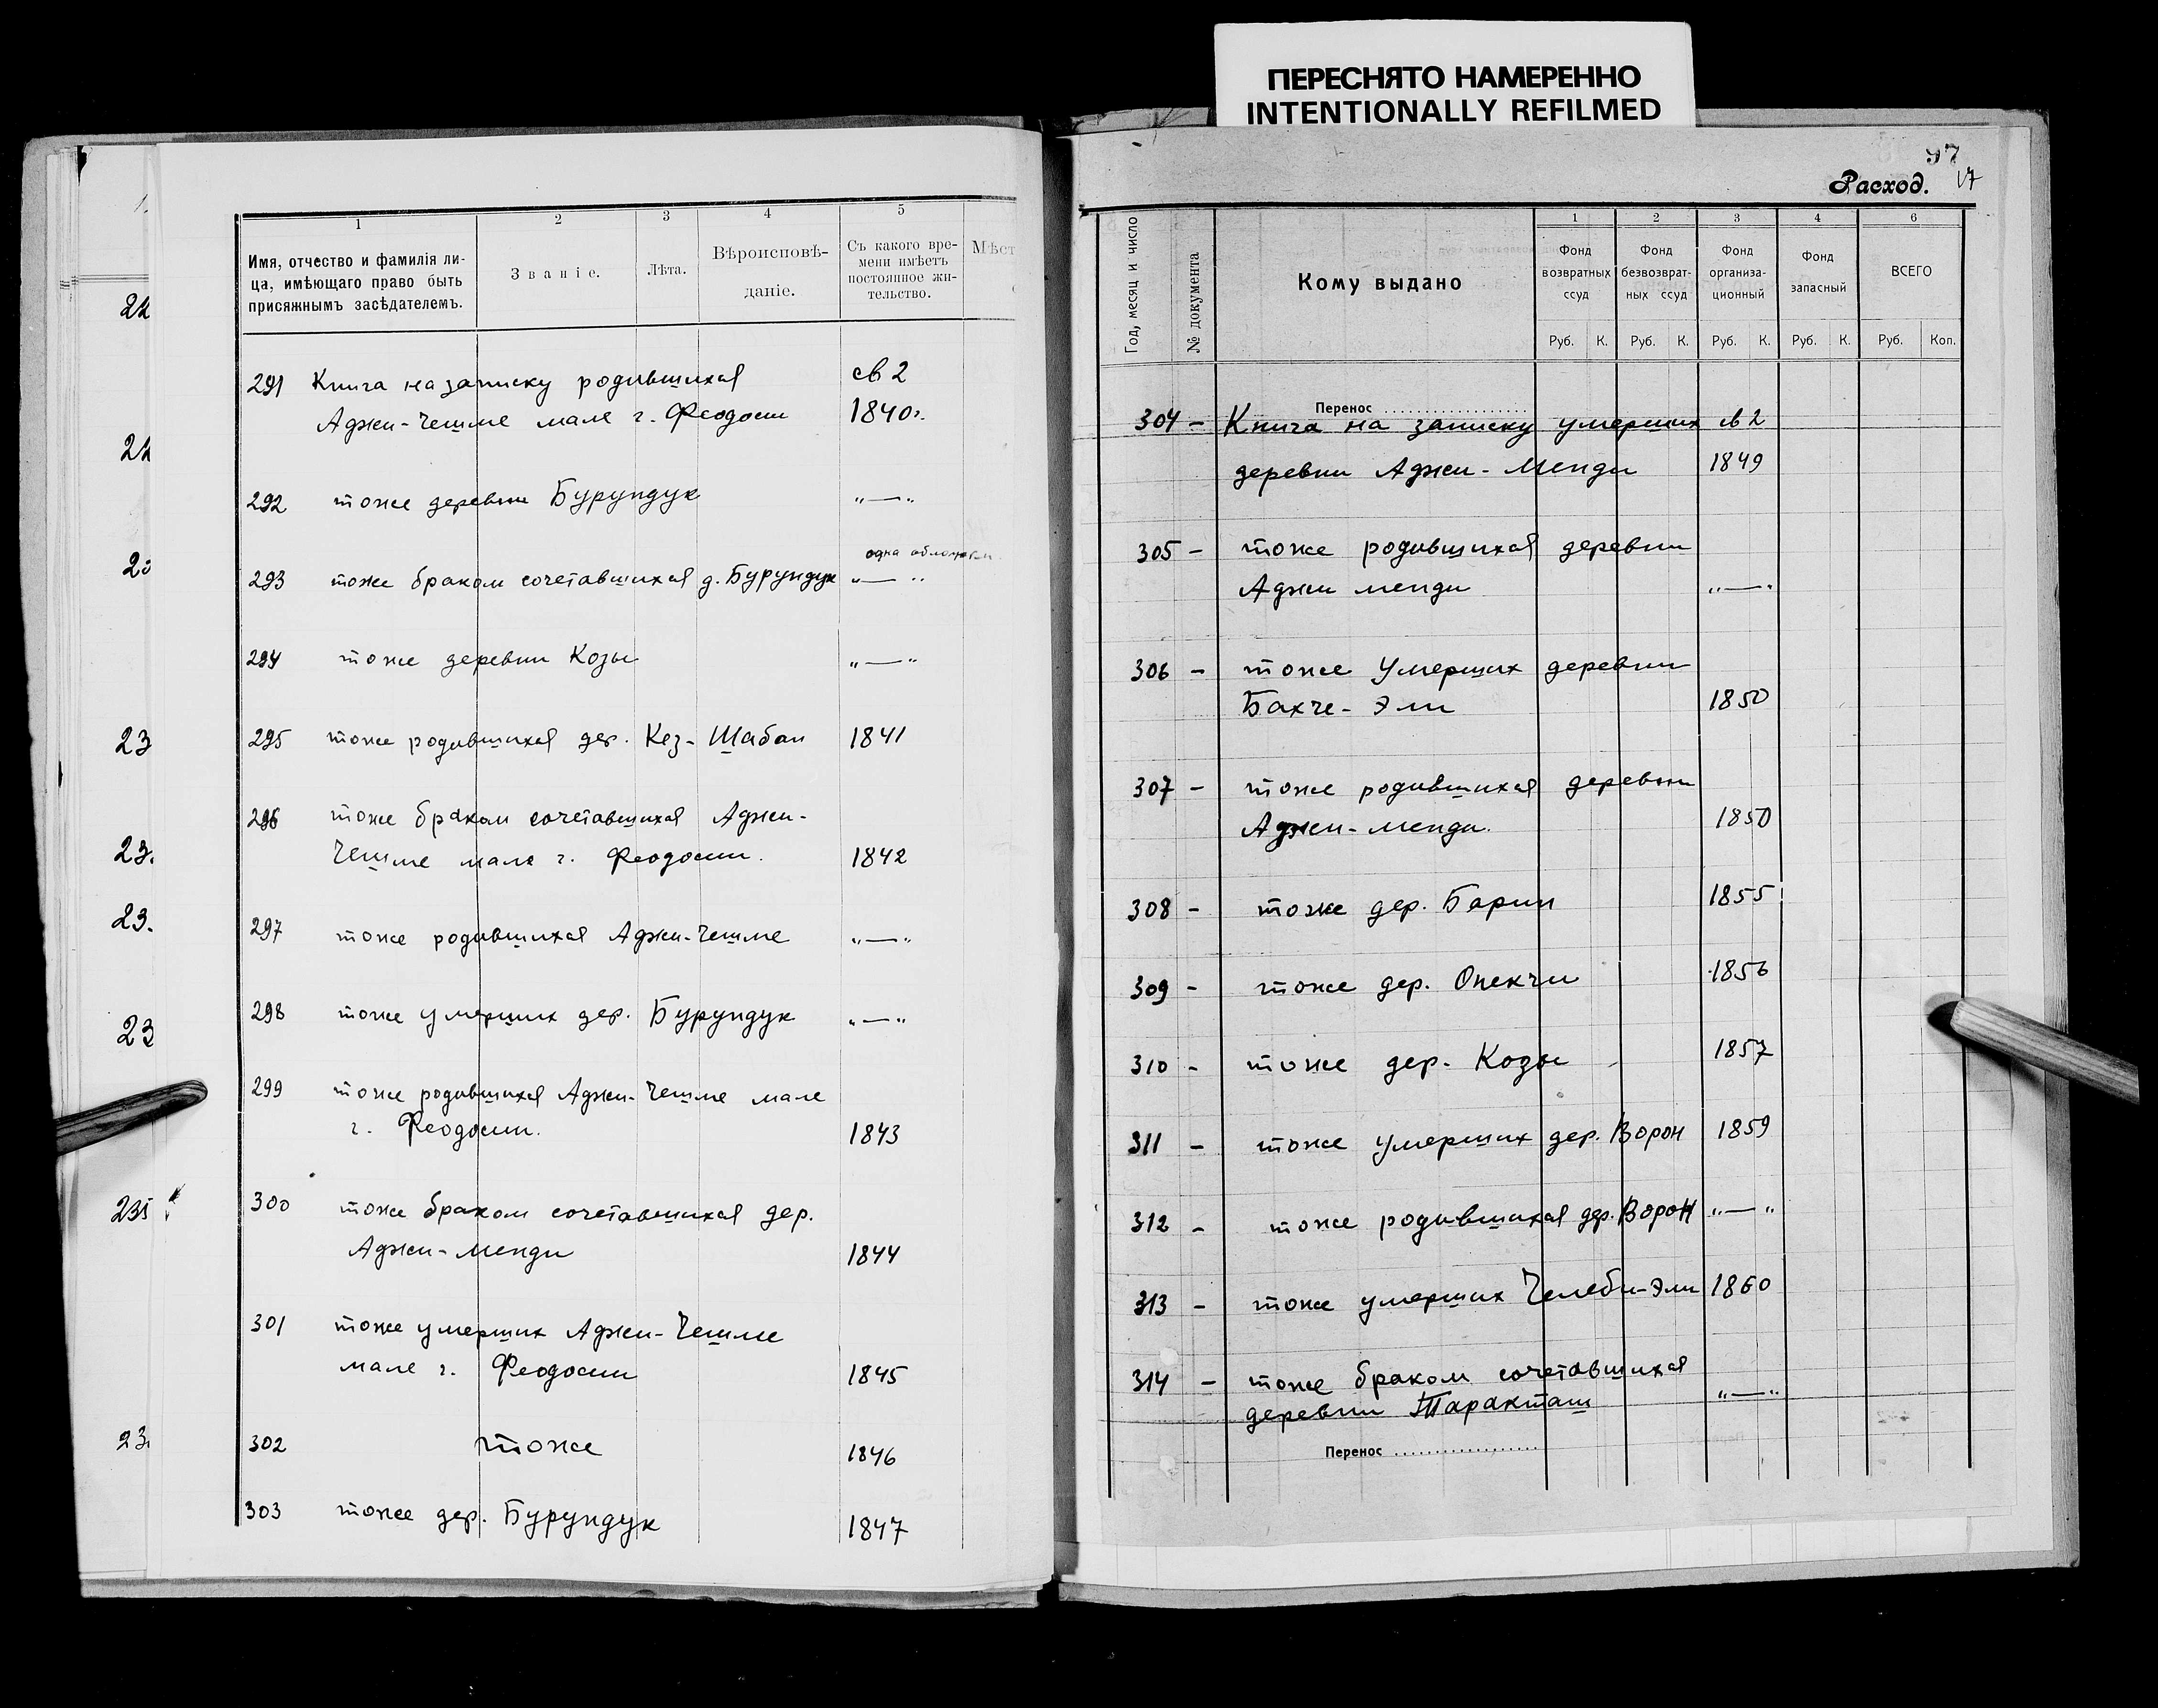 ПЕРЕСНЯТО НАМЕРЕННО
INTENTIONALLY REFILMED
1 2 3 4 5
Имя, отчество и фамилія ли-
ца, имѣющаго право быть
присяжнымъ засѣдателемъ.
Званіе.
Лѣта.
Вѣроисповѣ-
даніе.
Съ какого вре-
мени имѣетъ
постоянное жи-
тельство.
Мѣст
22
22
23
23.
23.
23
23
291 Книга на записку родившихся св 2
Аджи-Чешме мале г. Феодосии 1840г.
292 тоже деревни Бурундук „—„
одна обложка
293 тоже браком сочетавшихся д. Бурундук „—„
294 тоже деревни Козы „—„
295 тоже родившихся дер. Кез-Шабан 1841
296 тоже браком сочетавшихся Аджи-
Чешме мале г. Феодосии. 1842
297 тоже родившихся Аджи-Чешме „—„
298 тоже умерших дер. Бурундук „—„
299 тоже родившихся Аджи-Чешме мале
г. Феодосии. 1843
300 тоже браком сочетавшихся дер.
Аджи-Менди 1844
301 тоже умерших Аджи-Чешме
мале г. Феодосии 1845
302 тоже 1846
303 тоже дер. Бурундук 1847
97
Расход. 17
Год, месяц и число
№ документа
Кому выдано
1 2 3 4 6
Фонд
возвратных
ссуд
Фонд
безвозврат-
ных ссуд
Фонд
организа-
ционный
Фонд
запасный
ВСЕГО
Руб. К. Руб. К. Руб. К. Руб. К. Руб. Коп.
Перенос
304 – Книга на записку умерших св 2
деревни Аджи-Менди 1849
305 – тоже родившихся деревни
Аджи менди „—„
306 – тоже умерших деревни
Бахче-Эли 1850
307 – тоже родившихся деревни
Аджи-менди. 1850
308 – тоже дер. Барин 1855
309 – тоже дер. Опекчи 1856
310 – тоже дер. Козы 1857
311 – тоже умерших дер. Ворон 1859
312 – тоже родившихся дер. Ворон „—„
313 – тоже умерших Челеби-Эли 1860
314 – тоже браком сочетавшихся
деревни Таракташ „—„
Перенос